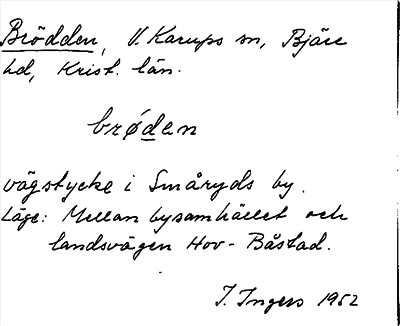 Brödden, V. Karups sn, Bjäre
hd, Krist. län.
brøden
vägstycke i Småryds by.
Läge: Mellan bysamhället och
landsvägen Hov - Båstad.
I. Ingers 1952